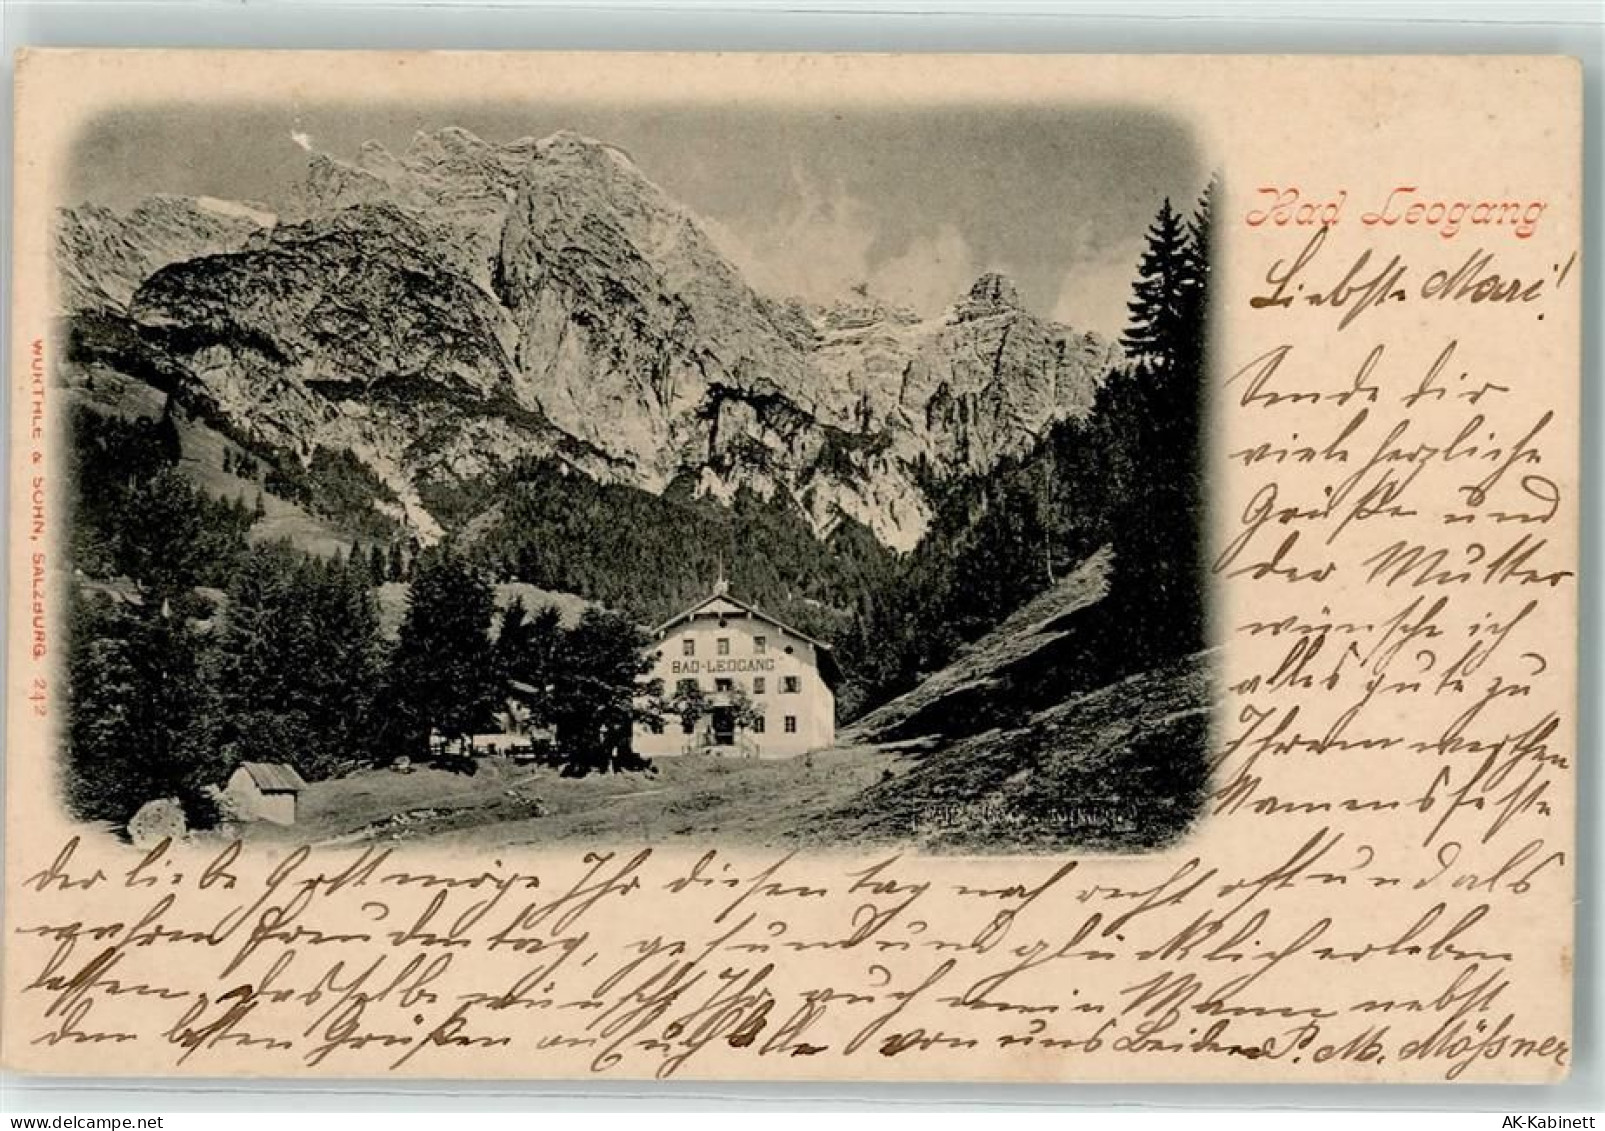 Bad Leogang
Liebste Mari!
Sende dir
viele herzliche
Grüße und
der Mutter
wünsche ich
alles gute zu
Ihrem werthen
Namensfeste
der liebe Gott möge Ihr diesen tag noch recht oft und als
wahren Freudentag, gesund und glücklich erleben
lassen, dasselbe wünscht Ihr auch mein Mann nebst
den besten Grüßen an Euch Alle von uns Beiden P. M. Mößner
WÜRTHLE & SOHN, SALZBURG. 242
BAD-LEOGANG
AK-Kabinett